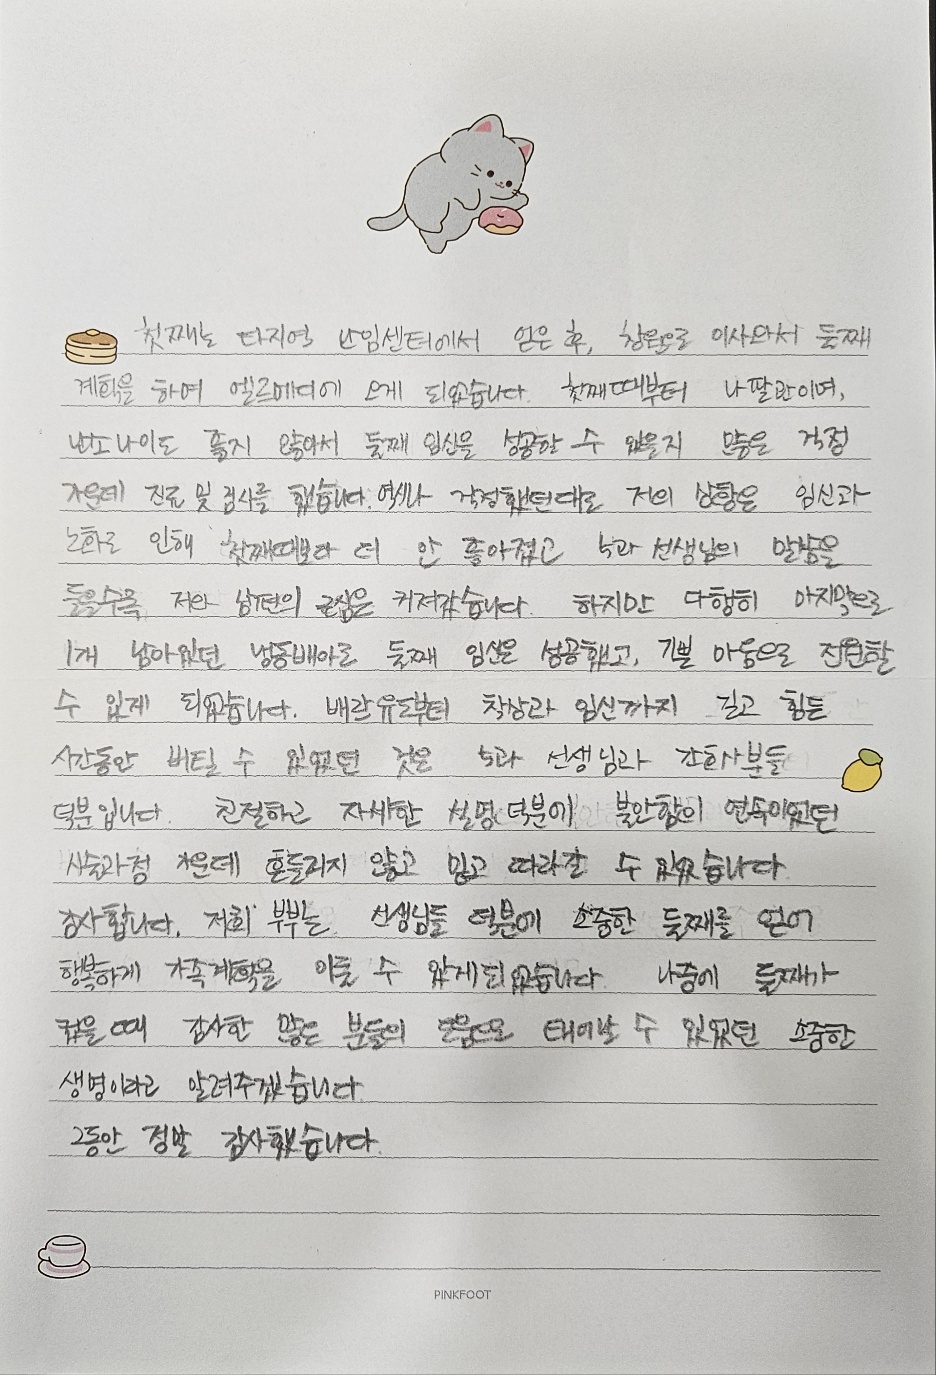 첫째는 타지역 난임센터에서 얻은 후, 창원으로 이사와서 둘째
계획을 하여 엘르메디에 오게 되었습니다. 첫째때부터 나팔관이며,
난소나이도 좋지 않아서 둘째 임신을 성공할 수 있을지 많은 걱정
가운데 진료 및 검사를 했습니다. 역시나 걱정했던대로 저의 상황은 임신과
노화로 인해 첫째때보다 더 안 좋아졌고 5과 선생님의 말씀을
들을수록 저와 남편의 근심은 커져갔습니다. 하지만 다행히 마지막으로
1개 남아있던 냉동배아로 둘째 임신은 성공했고, 기쁠 마음으로 전원할
수 있게 되었습니다. 배란유도부터 착상과 임신까지 길고 힘든
시간동안 버틸 수 있었던 것은 5과 선생님과 간호사분들
덕분입니다. 친절하고 자세한 설명 덕분에 불안함의 연속이었던
시술과정 가운데 흔들리지 않고 믿고 따라갈 수 있었습니다
감사합니다. 저희 부부는 선생님들 덕분에 소중한 둘째를 얻어
행복하게 가족계획을 이룰 수 있게 되었습니다. 나중에 둘째가
컸을 때 감사한 많은 분들의 도움으로 태어날 수 있었던 소중한
생명이라고 알려주겠습니다.
그동안 정말 감사했습니다.
PINKFOOT